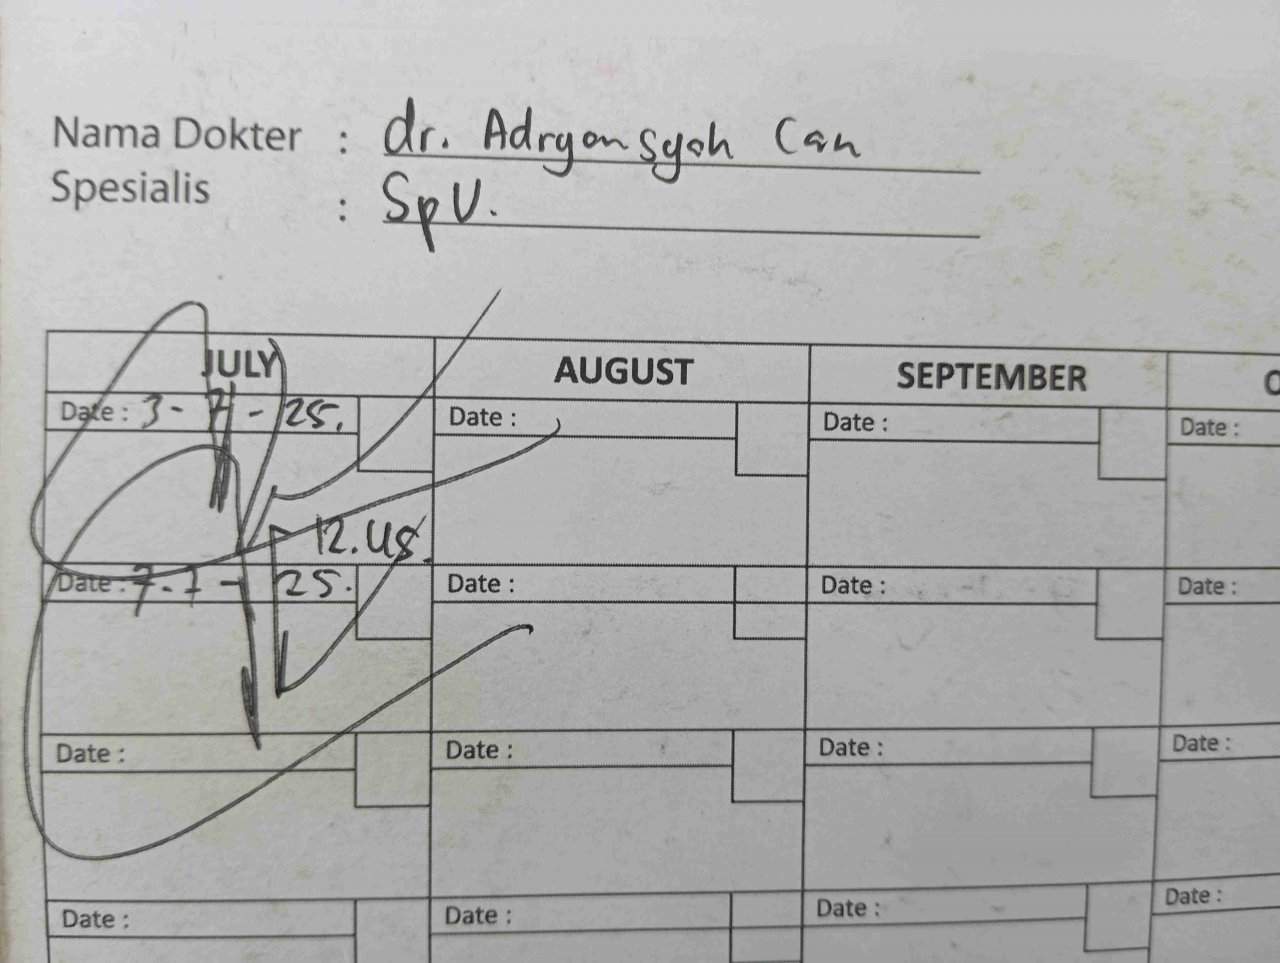 Nama Dokter : dr. Adryansyah Can
Spesialis : SpU.
JULY AUGUST SEPTEMBER O
Date : 3 - 7 - 25. Date : Date : Date :
12.45.
Date : 7 - 7 - 25. Date : Date : Date :
Date : Date : Date : Date :
Date : Date : Date : Date :